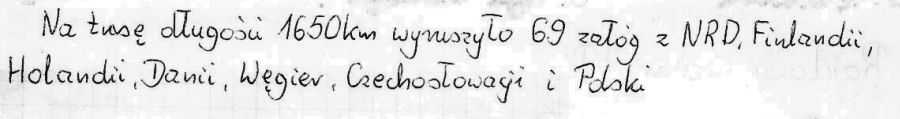 Na trasę długości 1650km wyruszyło 69 załóg z NRD, Finlandii,
Holandii, Danii, Węgier, Czechosłowacji i Polski